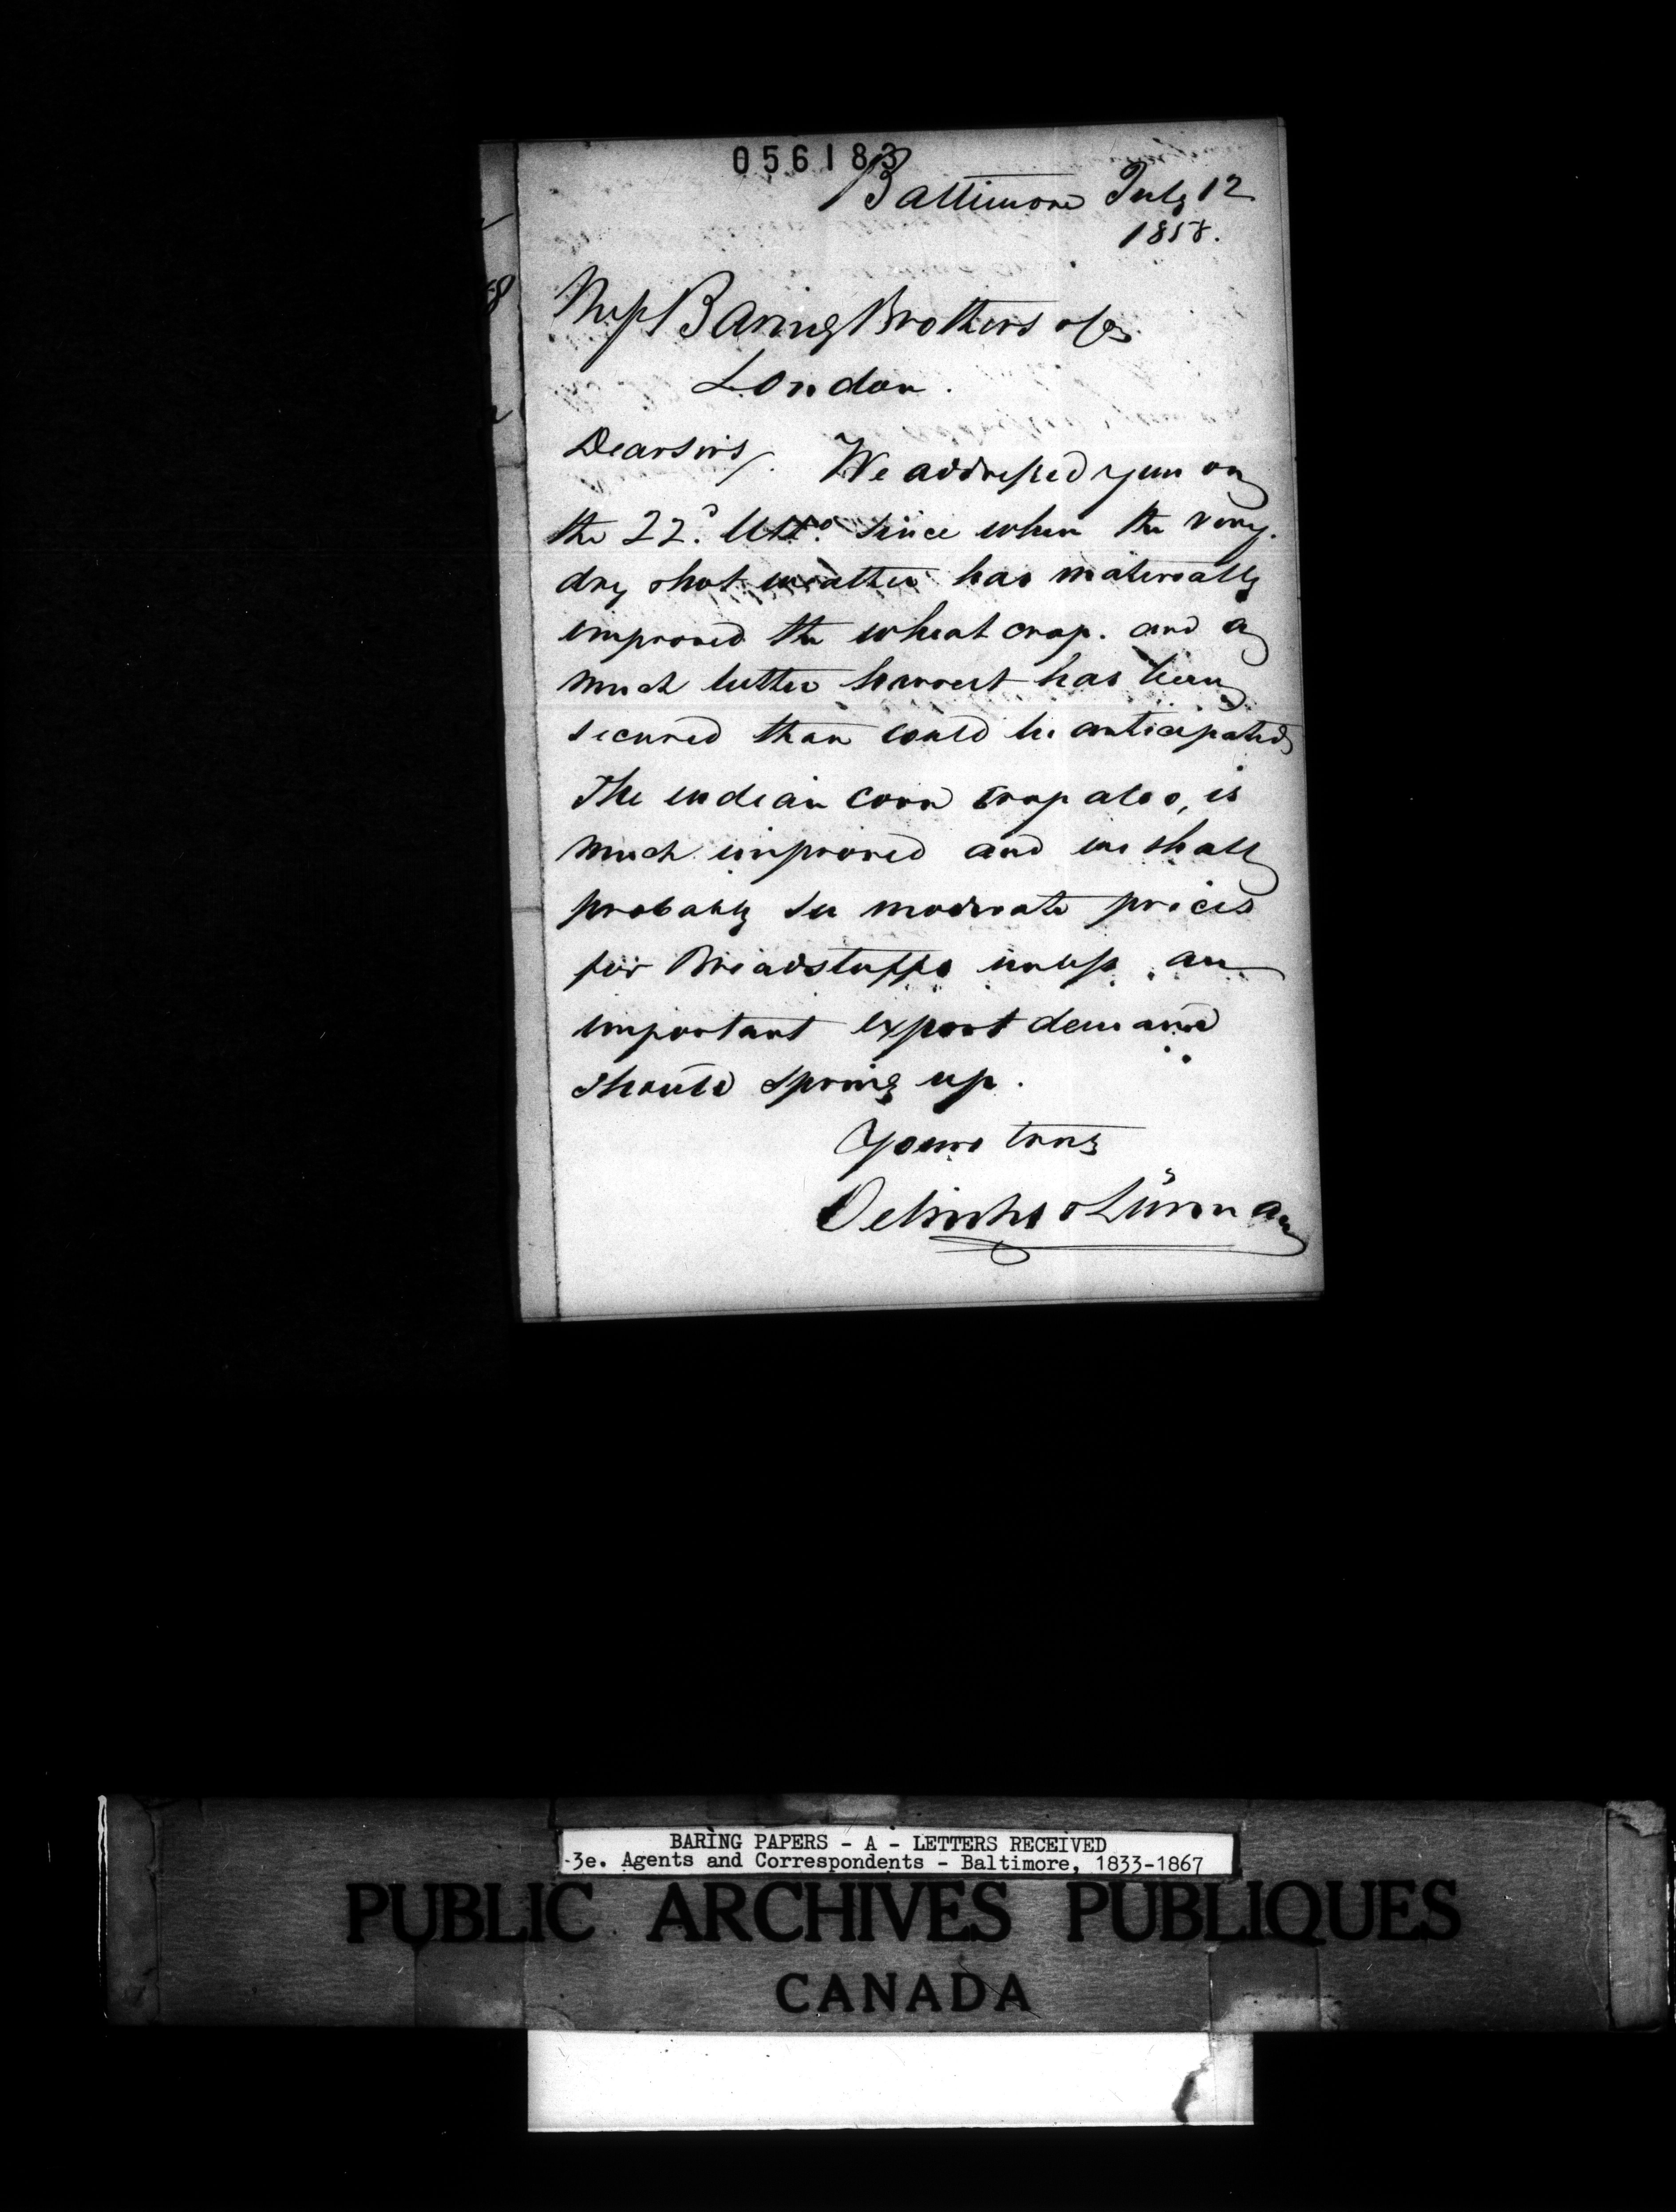 056183
Baltimore July 12
1858.
Mess Baring Brothers & Co
London.
Dear Sirs/. We addressed you on
the 22d. Ulto. since when the very
dry & hot weather has materially
improved the wheat crop. and a
much better harvest has been
secured than could be anticipated
The indian corn crop also, is
much improved and we shall
probably see moderate prices
for Breadstuffs unless an
important export demand
should spring up.
Yours truly
Oelrichs & Lürman
BARING PAPERS - A - LETTERS RECEIVED
3e. Agents and Correspondents - Baltimore, 1833-1867
PUBLIC ARCHIVES PUBLIQUES
CANADA